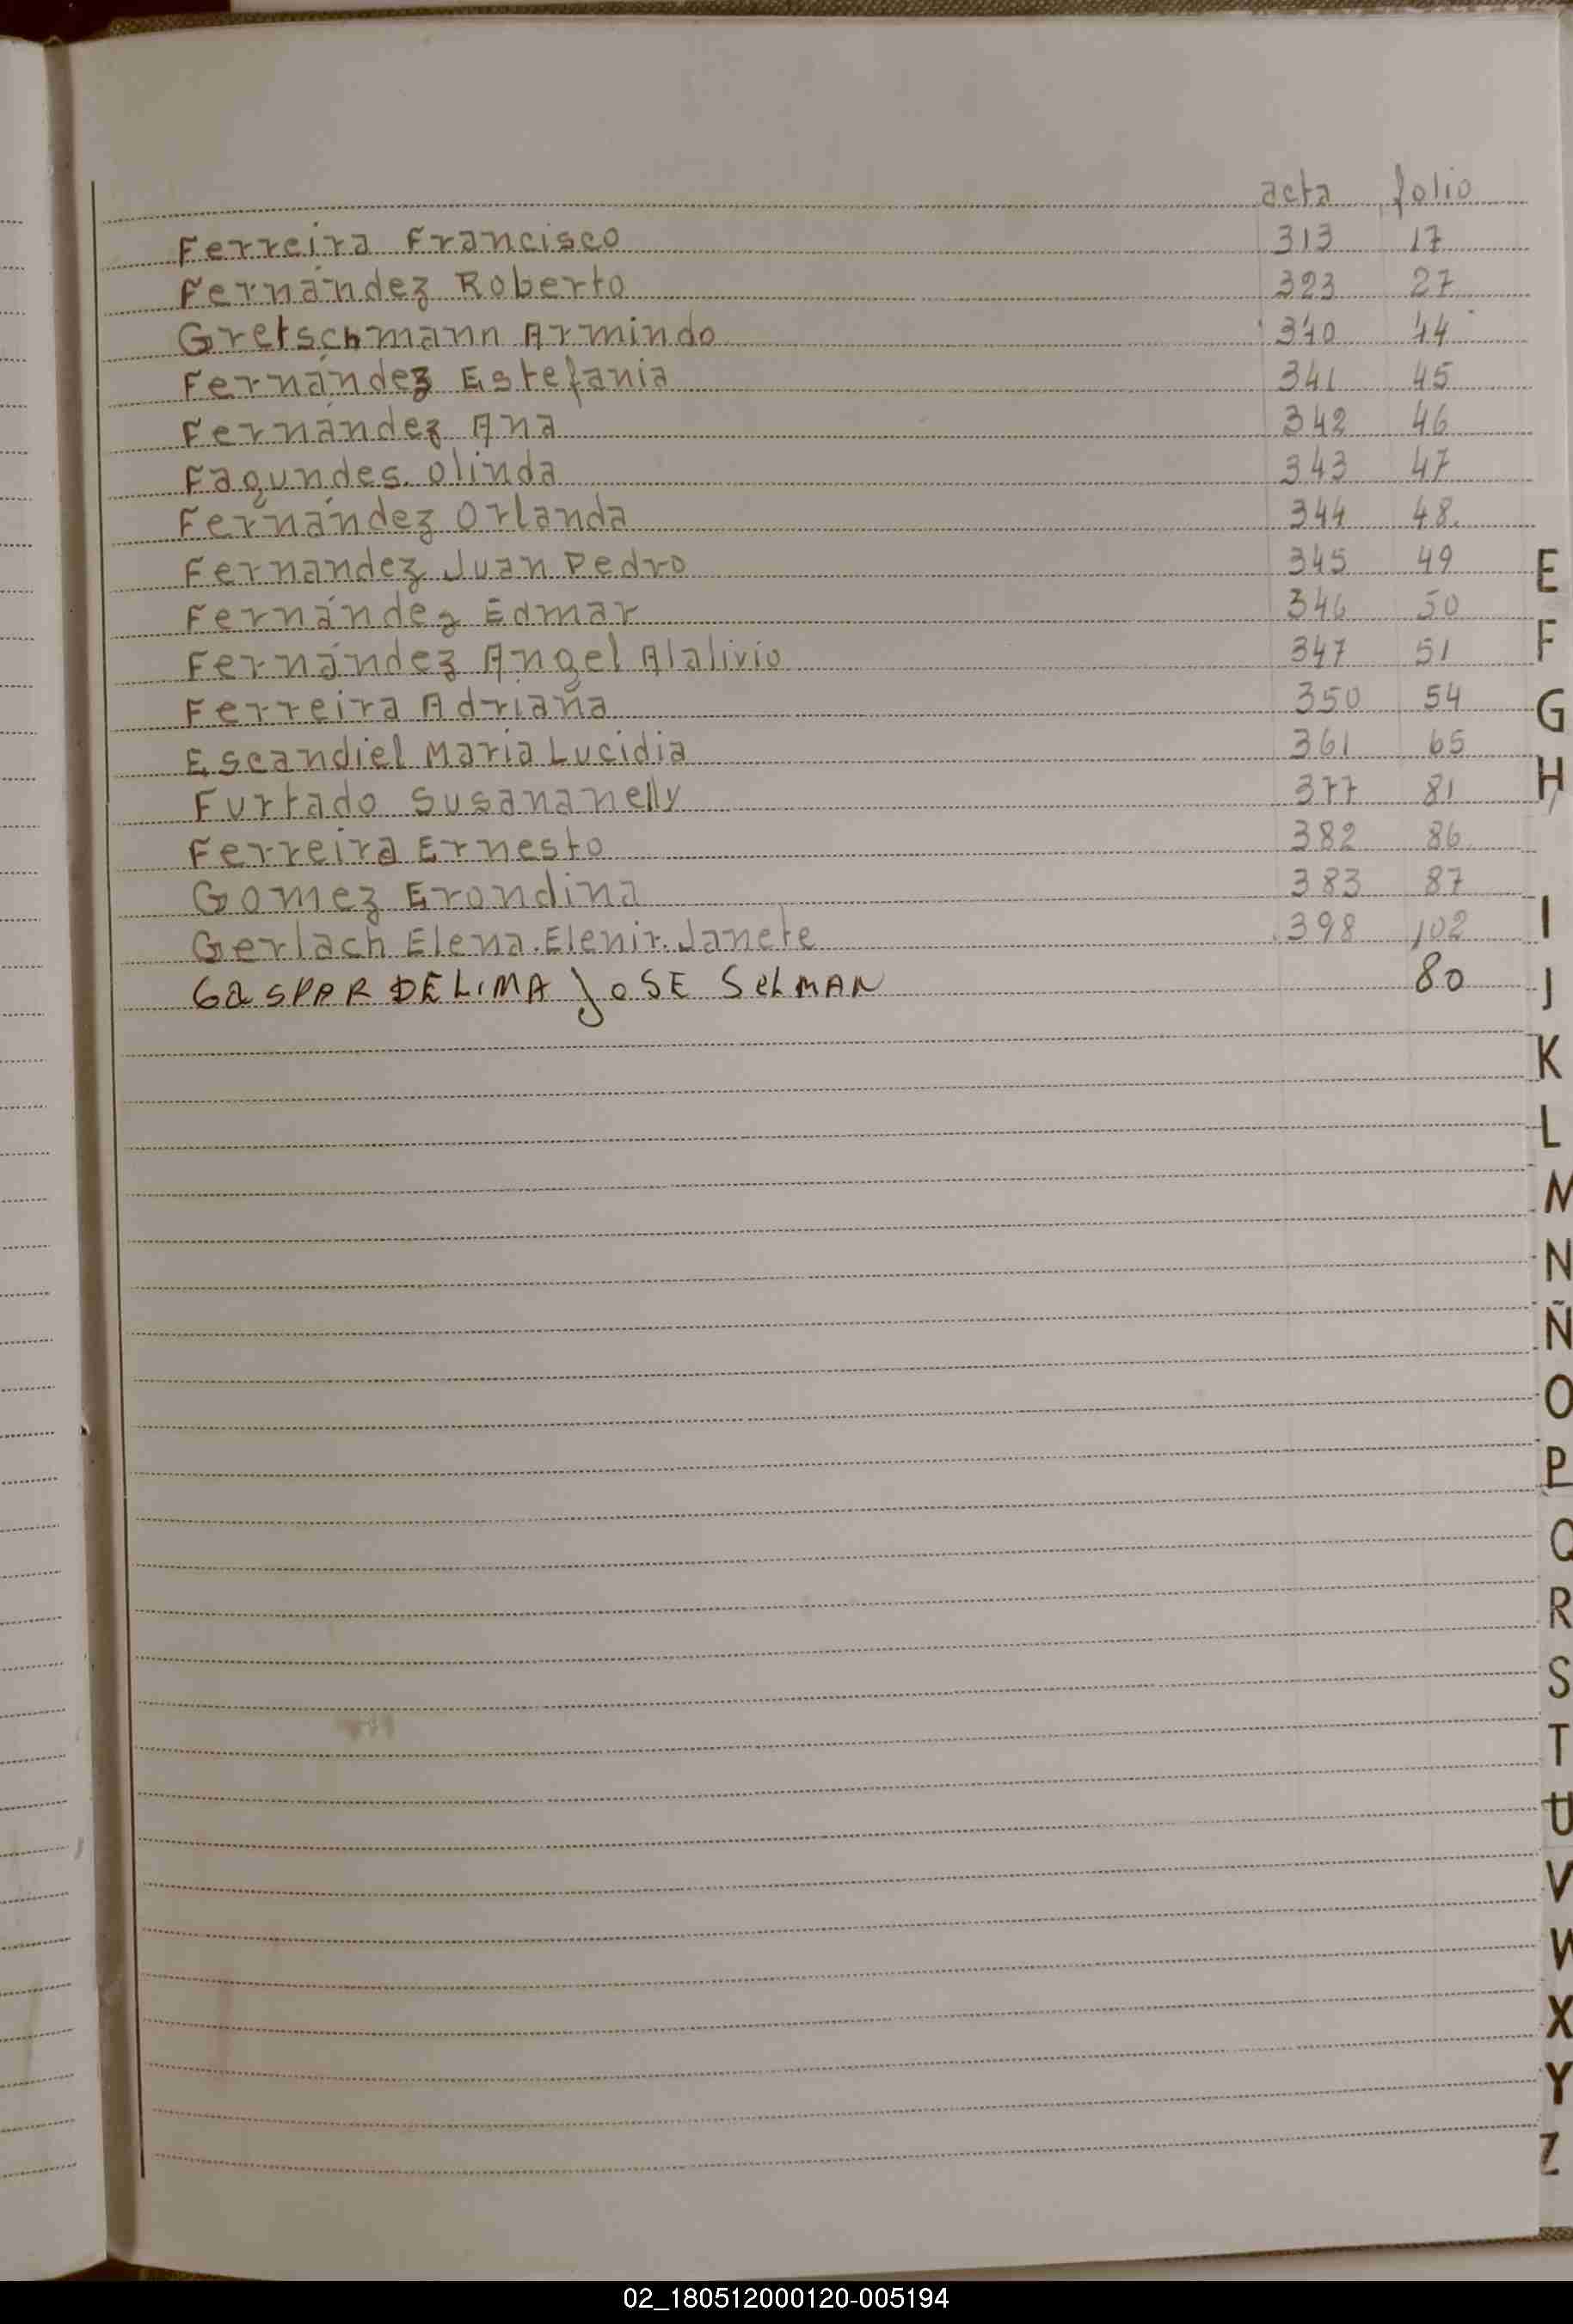 acta folio
Ferreira Francisco 313 17
Fernández Roberto 323 27
Gretschmann Armindo 340 44
Fernández Estefania 341 45
Fernández Ana 342 46
Fagundes. Olinda 343 47
Fernández Orlanda 344 48
Fernandez Juan Pedro 345 49
Fernández Edmar 346 50
Fernández Angel Alalivio 347 51
Ferreira Adriana 350 54
Escandiel Maria Lucidia 361 65
Furtado Susana Nelly 377 81
Ferreira Ernesto 382 86
Gomez Erondina 383 87
Gerlach Elena. Elenir. Janete 398 102
GaSPAR DE LIMA JOSE SELMAN 80
E
F
G
H
I
J
K
L
M
N
Ñ
O
P
Q
R
S
T
U
V
W
X
Y
Z
02_180512000120-005194